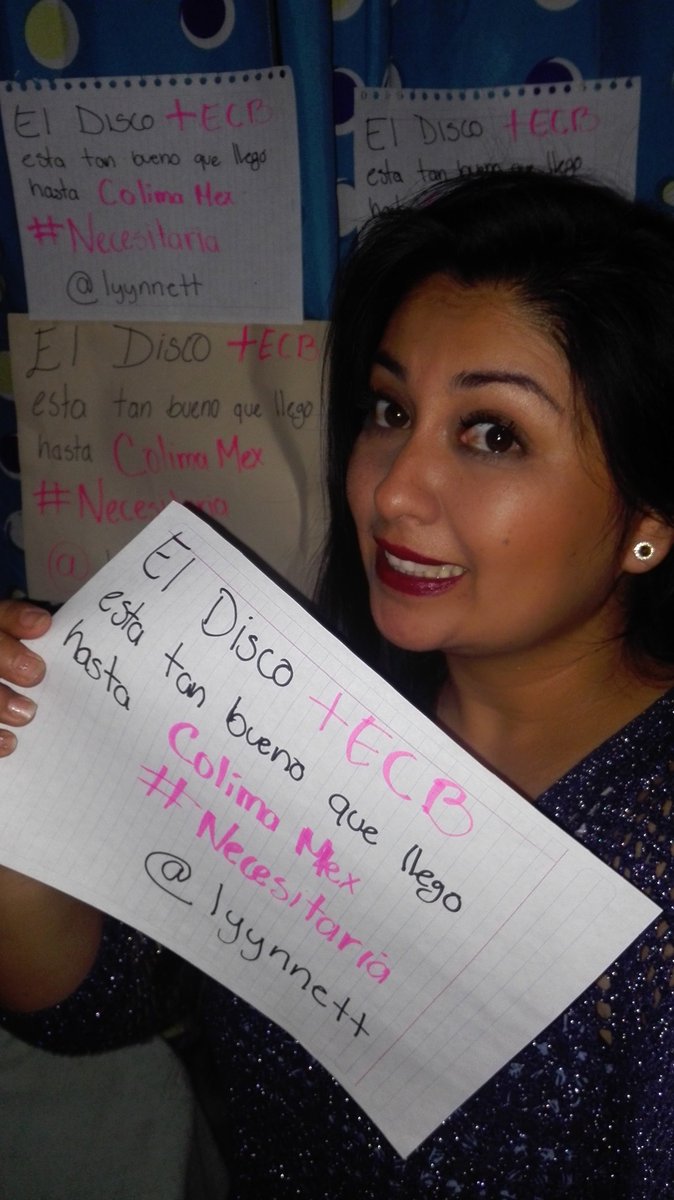 El Disco +ECB
esta tan bueno que llego
hasta Colima Mex
#Necesitaria
@lyynnett
El Disco +ECB
esta tan bueno llego
El Disco +ECB
esta tan bueno que llego
hasta Colima Mex
#Necesitaria
@
El Disco +ECB
esta tan bueno que llego
hasta Colima Mex
#Necesitaria
@lyynnett